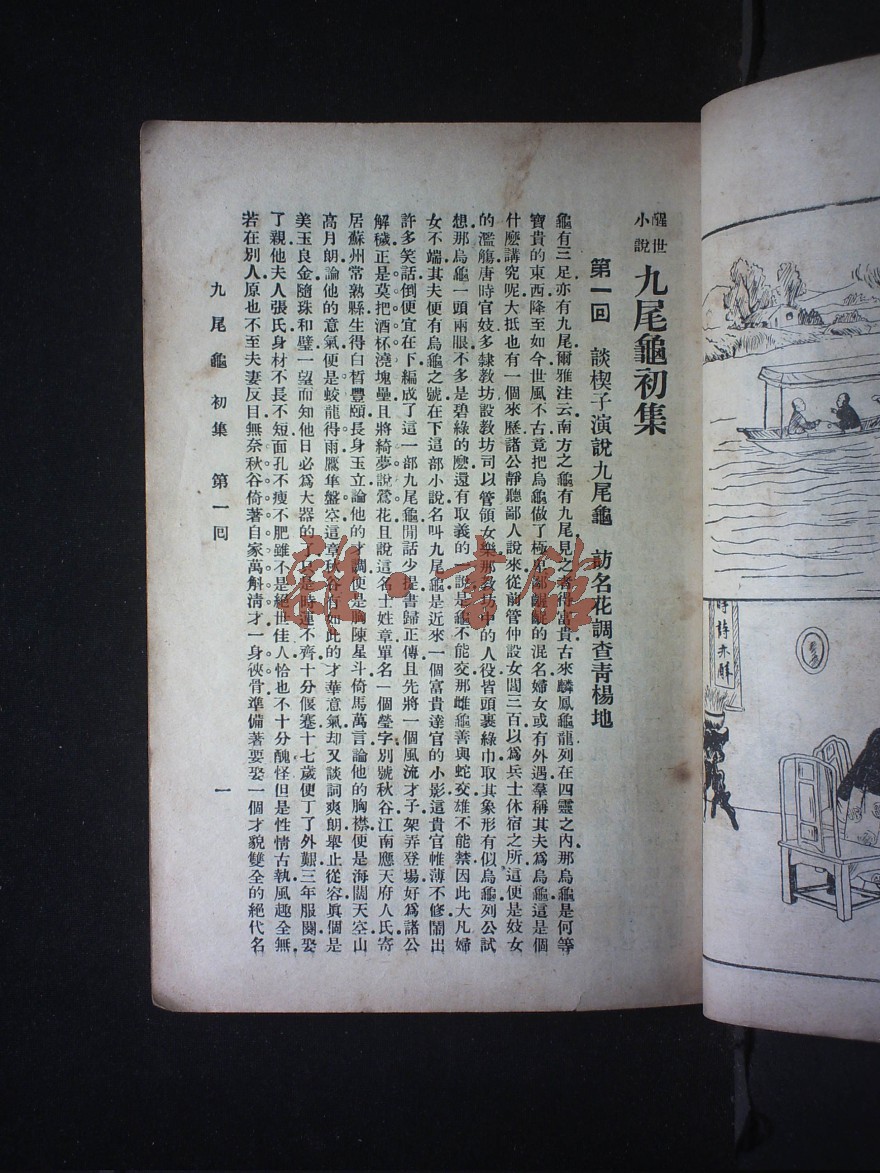 時詩亦解
醒世小說 九尾龜初集
第一回 談楔子演說九尾龜 訪名花調查青楊地
龜有三足亦有九尾爾雅注云南方之龜有九尾見之者得富貴古來麟鳳龜龍列在四靈之內那烏龜是何等
寶貴的東西降至如今世風不古竟把烏龜做了極卑鄙齷齪的混名婦女或有外遇羣稱其夫爲烏龜這是個
什麽講究呢大抵也有一個來歷諸公靜聽鄙人說來從前管仲設女閭三百以爲兵士休宿之所這便是妓女
的濫觴唐時官妓多隸教坊設教坊司以管領女樂那教坊中的人役皆頭裹綠巾取其象形有似烏龜列公試
想那烏龜一頭兩眼不多是碧綠的麽還有取義的一說是龜不能交那雌龜善與蛇交雄不能禁因此大凡婦
女不端其夫便有烏龜之號在下這部小說名叫九尾龜是近來一個富貴達官的小影這貴官帷薄不修鬧出
許多笑話倒便宜在下編成了這一部九尾龜閒話少提書歸正傳且先將一個風流才子架弄登場好爲諸公
解穢正是莫把酒杯澆塊壘且將綺夢說鶯花且說這名士姓章單名一個瑩字別號秋谷江南應天府人氏寄
居蘇州常熟縣生得白皙豐頤長身玉立論他的才調便是胸陳星斗倚馬萬言論他的胸襟便是海闊天空山
高月朗論他的意氣便是蛟龍得雨鷹隼盤空這章秋谷有如此的才華意氣却又談詞爽朗舉止從容眞個是
美玉良金隨珠和璧一望而知他日必爲大器的了只是時運不齊十分偃蹇十七歲便丁了外艱三年服闋娶
了親他夫人張氏身材不長不短面孔不瘦不肥雖不是絕世佳人恰也不十分醜怪但是性情古執風趣全無
若在別人原也不至夫妻反目無奈秋谷倚著自家萬斛淸才一身俠骨準備著要娶一個才貌雙全的絕代名
九尾龜 初集 第一回 一
雜·書館